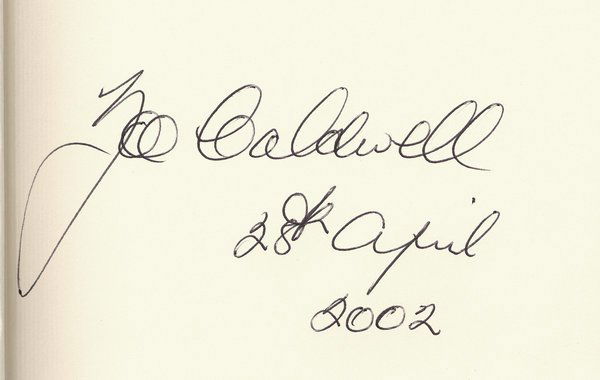 Zoe Caldwell
28th April
2002